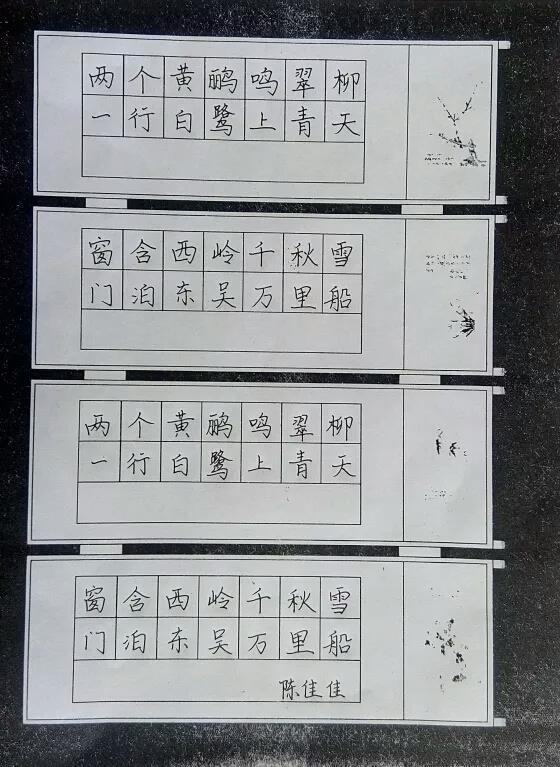 两个黄鹂鸣翠柳
一行白鹭上青天
窗含西岭千秋雪
门泊东吴万里船
两个黄鹂鸣翠柳
一行白鹭上青天
窗含西岭千秋雪
门泊东吴万里船
陈佳佳